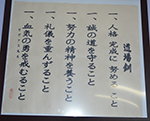 道場訓
一、人格完成に努めること
一、誠の道を守ること
一、努力の精神を養うこと
一、礼儀を重んずること
一、血気の勇を戒むること